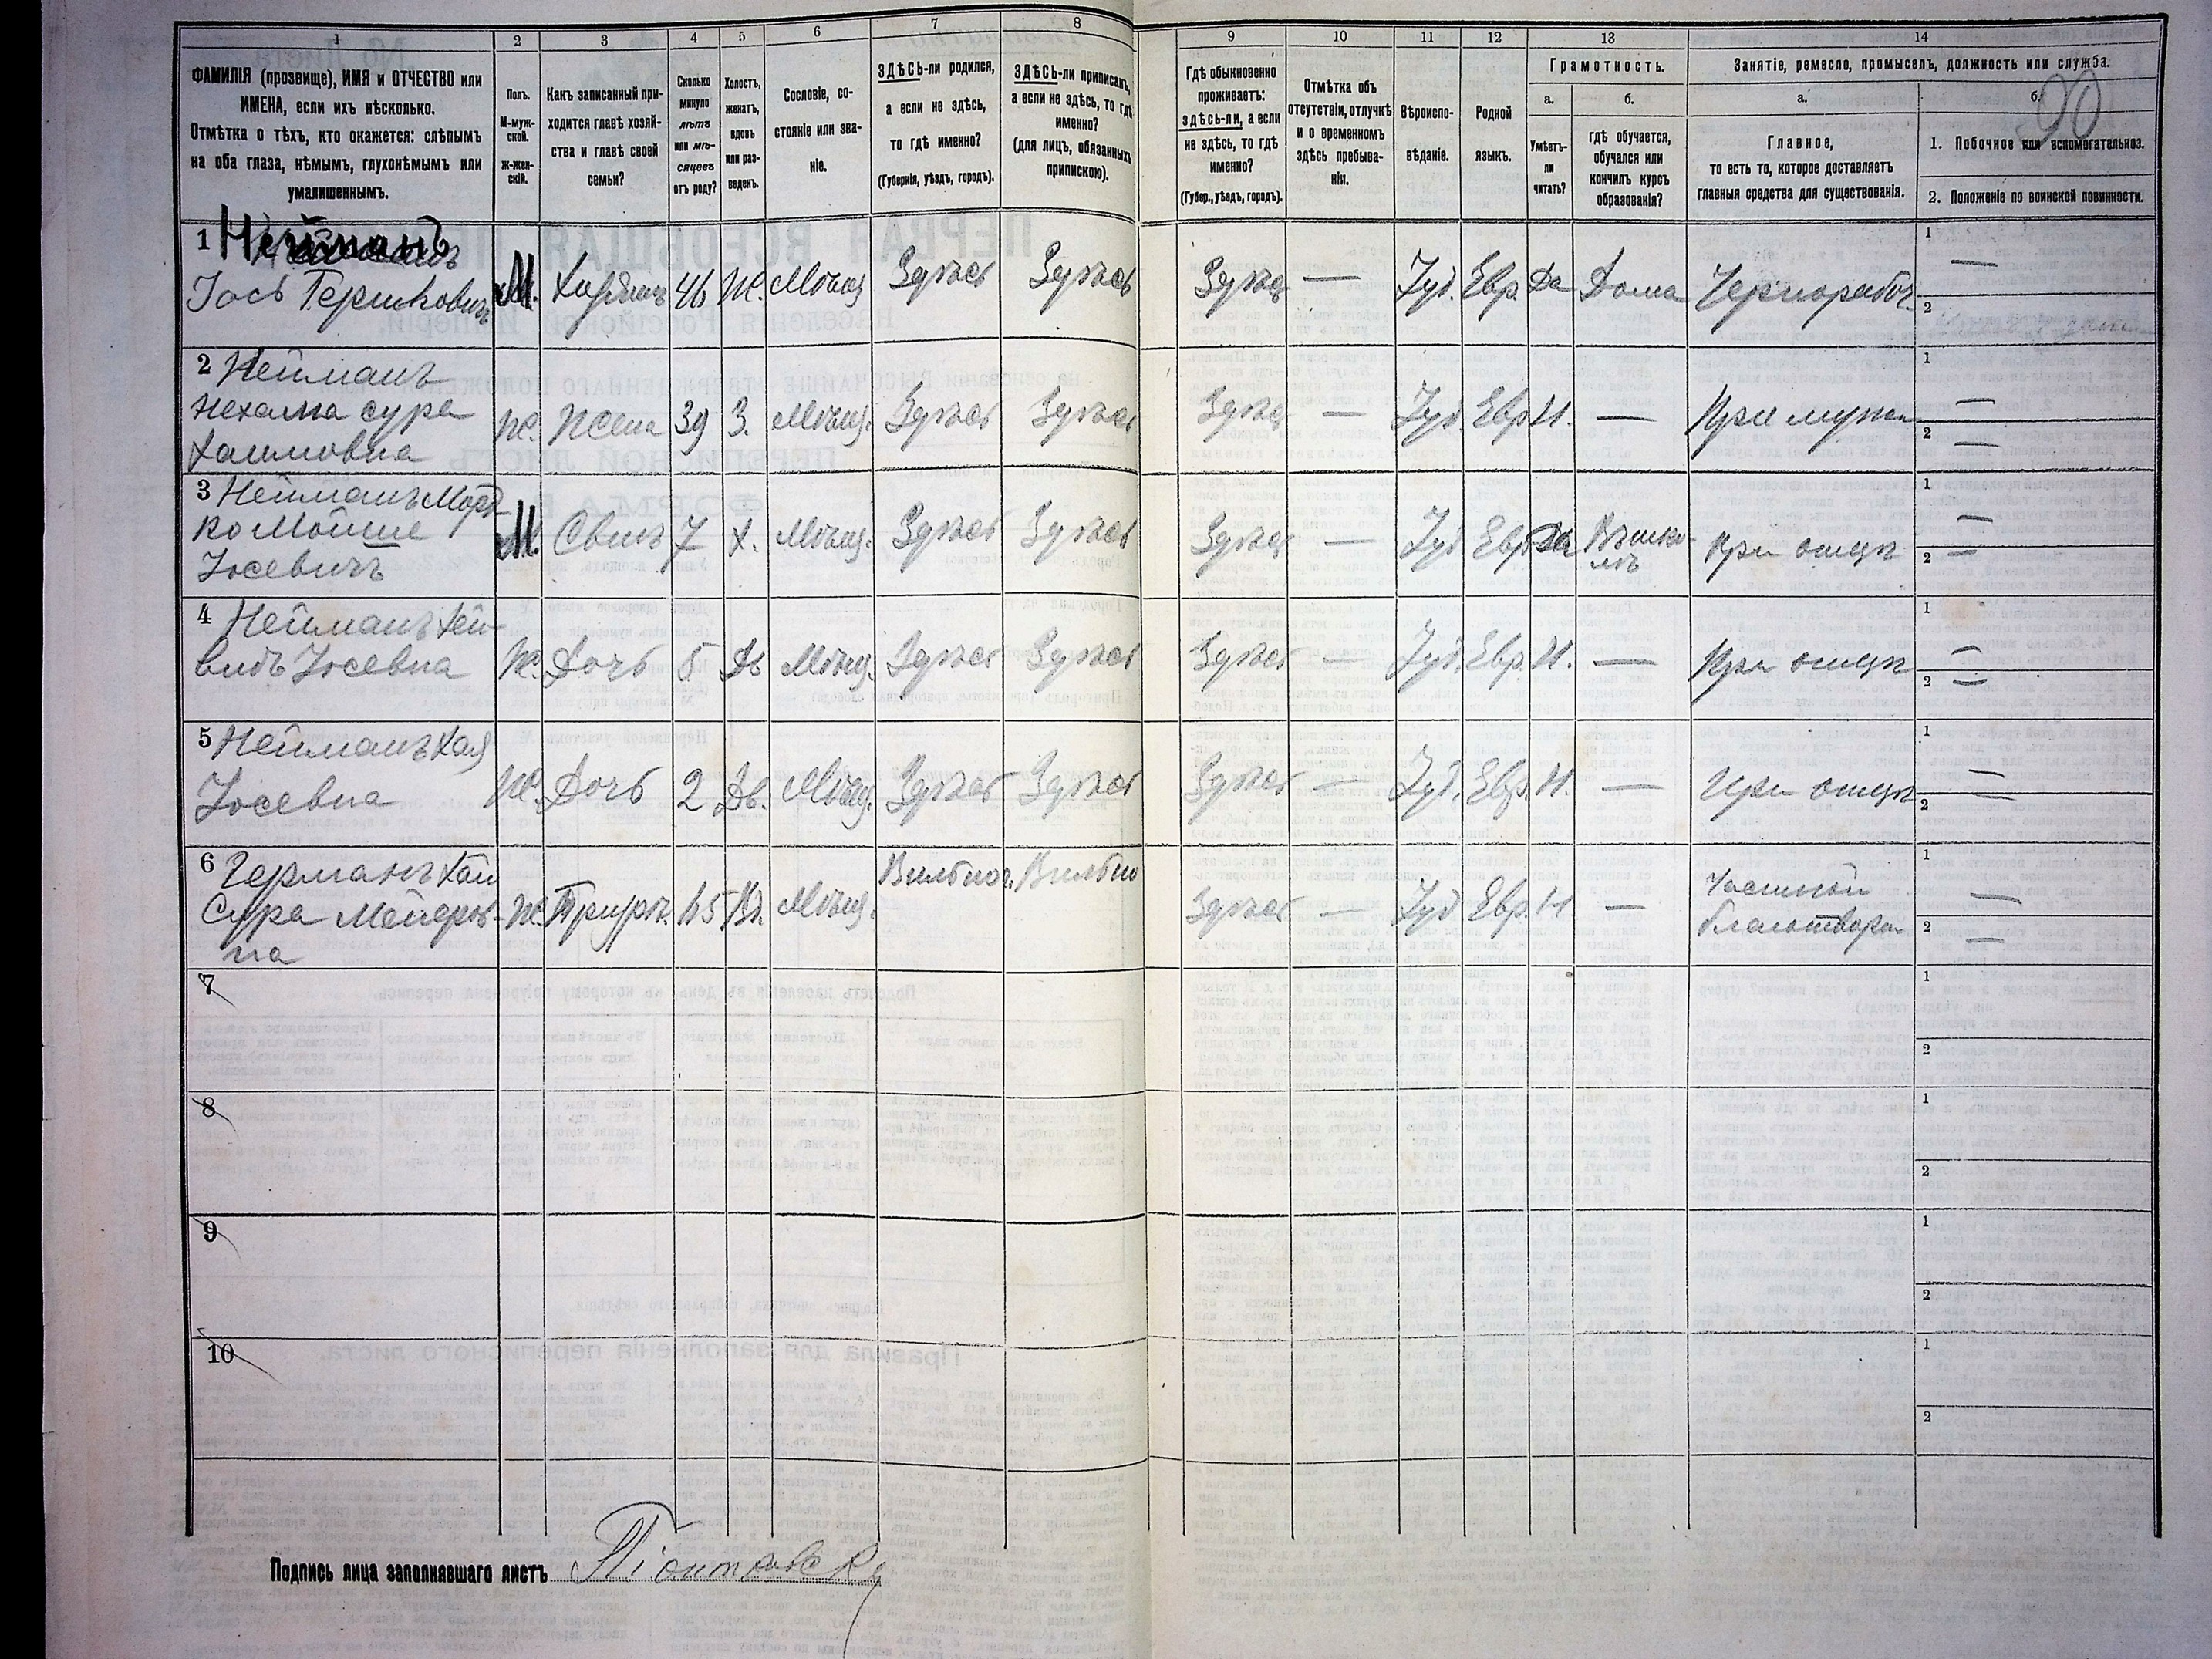 1 2 3 4 5 6 7 8 9 10 11 12 13 14
ФАМИЛІЯ (прозвище), ИМЯ и ОТЧЕСТВО или
ИМЕНА, если ихъ нѣсколько.
Отмѣтка о тѣхъ, кто окажется: слѣпымъ
на оба глаза, нѣмымъ, глухонѣмымъ или
умалишеннымъ.
Полъ.
М-муж-
ской.
ж-жен-
скій.
Какъ записанный при-
ходится главѣ хозяй-
ства и главѣ своей
семьи?
Сколько
минуло
лѣтъ
или мѣ-
сяцевъ
отъ роду?
Холостъ,
женатъ,
вдовъ
или раз-
веденъ.
Сословіе, со-
стояніе или зва-
ніе.
ЗДѢСЬ-ли родился,
а если не здѣсь,
то гдѣ именно?
(Губернія, уѣздъ, городъ).
ЗДѢСЬ-ли приписанъ,
а если не здѣсь, то гдѣ
именно?
(для лицъ, обязанныхъ
припискою).
Гдѣ обыкновенно
проживаетъ:
здѣсь-ли, а если
не здѣсь, то гдѣ
именно?
(Губер., уѣздъ, городъ).
Отмѣтка объ
отсутствіи, отлучкѣ
и о временномъ
здѣсь пребыва-
ніи.
Вѣроиспо-
вѣданіе.
Родной
языкъ.
Грамотность.
а. б.
Умѣетъ-
ли
читать?
гдѣ обучается,
обучался или
кончилъ курсъ
образованія?
Занятіе, ремесло, промыселъ, должность или служба.
а. б.
90
Главное,
то есть то, которое доставляетъ
главныя средства для существованія.
1. Побочное или вспомогательное.
2. Положеніе по воинской повинности.
1 Нейманъ
Іось Гершковичъ М. Хозяинъ 46 Ж. Мѣщ. Здѣсь Здѣсь Здѣсь — Іуд. Евр. Да Дома Чернорабоч. 1 — 2
2 Нейманъ
Нехама Сура
Хаимовна Ж. Жена 39 З. Мѣщ. Здѣсь Здѣсь Здѣсь — Іуд. Евр. Н. — При мужѣ 1 — 2 —
3 Нейманъ Морд-
ко Мойше
Іосевичъ М. Сынъ 7 Х. Мѣщ. Здѣсь Здѣсь Здѣсь — Іуд. Евр. Да Въ шко-
лѣ При отцѣ 1 — 2 —
4 Нейманъ Хей-
видъ Іосевна Ж. Дочь 5 Дв. Мѣщ. Здѣсь Здѣсь Здѣсь — Іуд. Евр. Н. — При отцѣ 1 — 2 —
5 Нейманъ Хая
Іосевна Ж. Дочь 2 Дв. Мѣщ. Здѣсь Здѣсь Здѣсь — Іуд. Евр. Н. — При отцѣ 1 — 2 —
6 Германъ Хая
Сура Мейеров-
на Ж. 65 Вд. Мѣщ. Здѣсь — Іуд. Евр. Н. — Частной
благотвори 1 — 2 —
7 1 2
8 1 2
9 1 2
10 1 2
Подпись лица заполнявшаго листъ